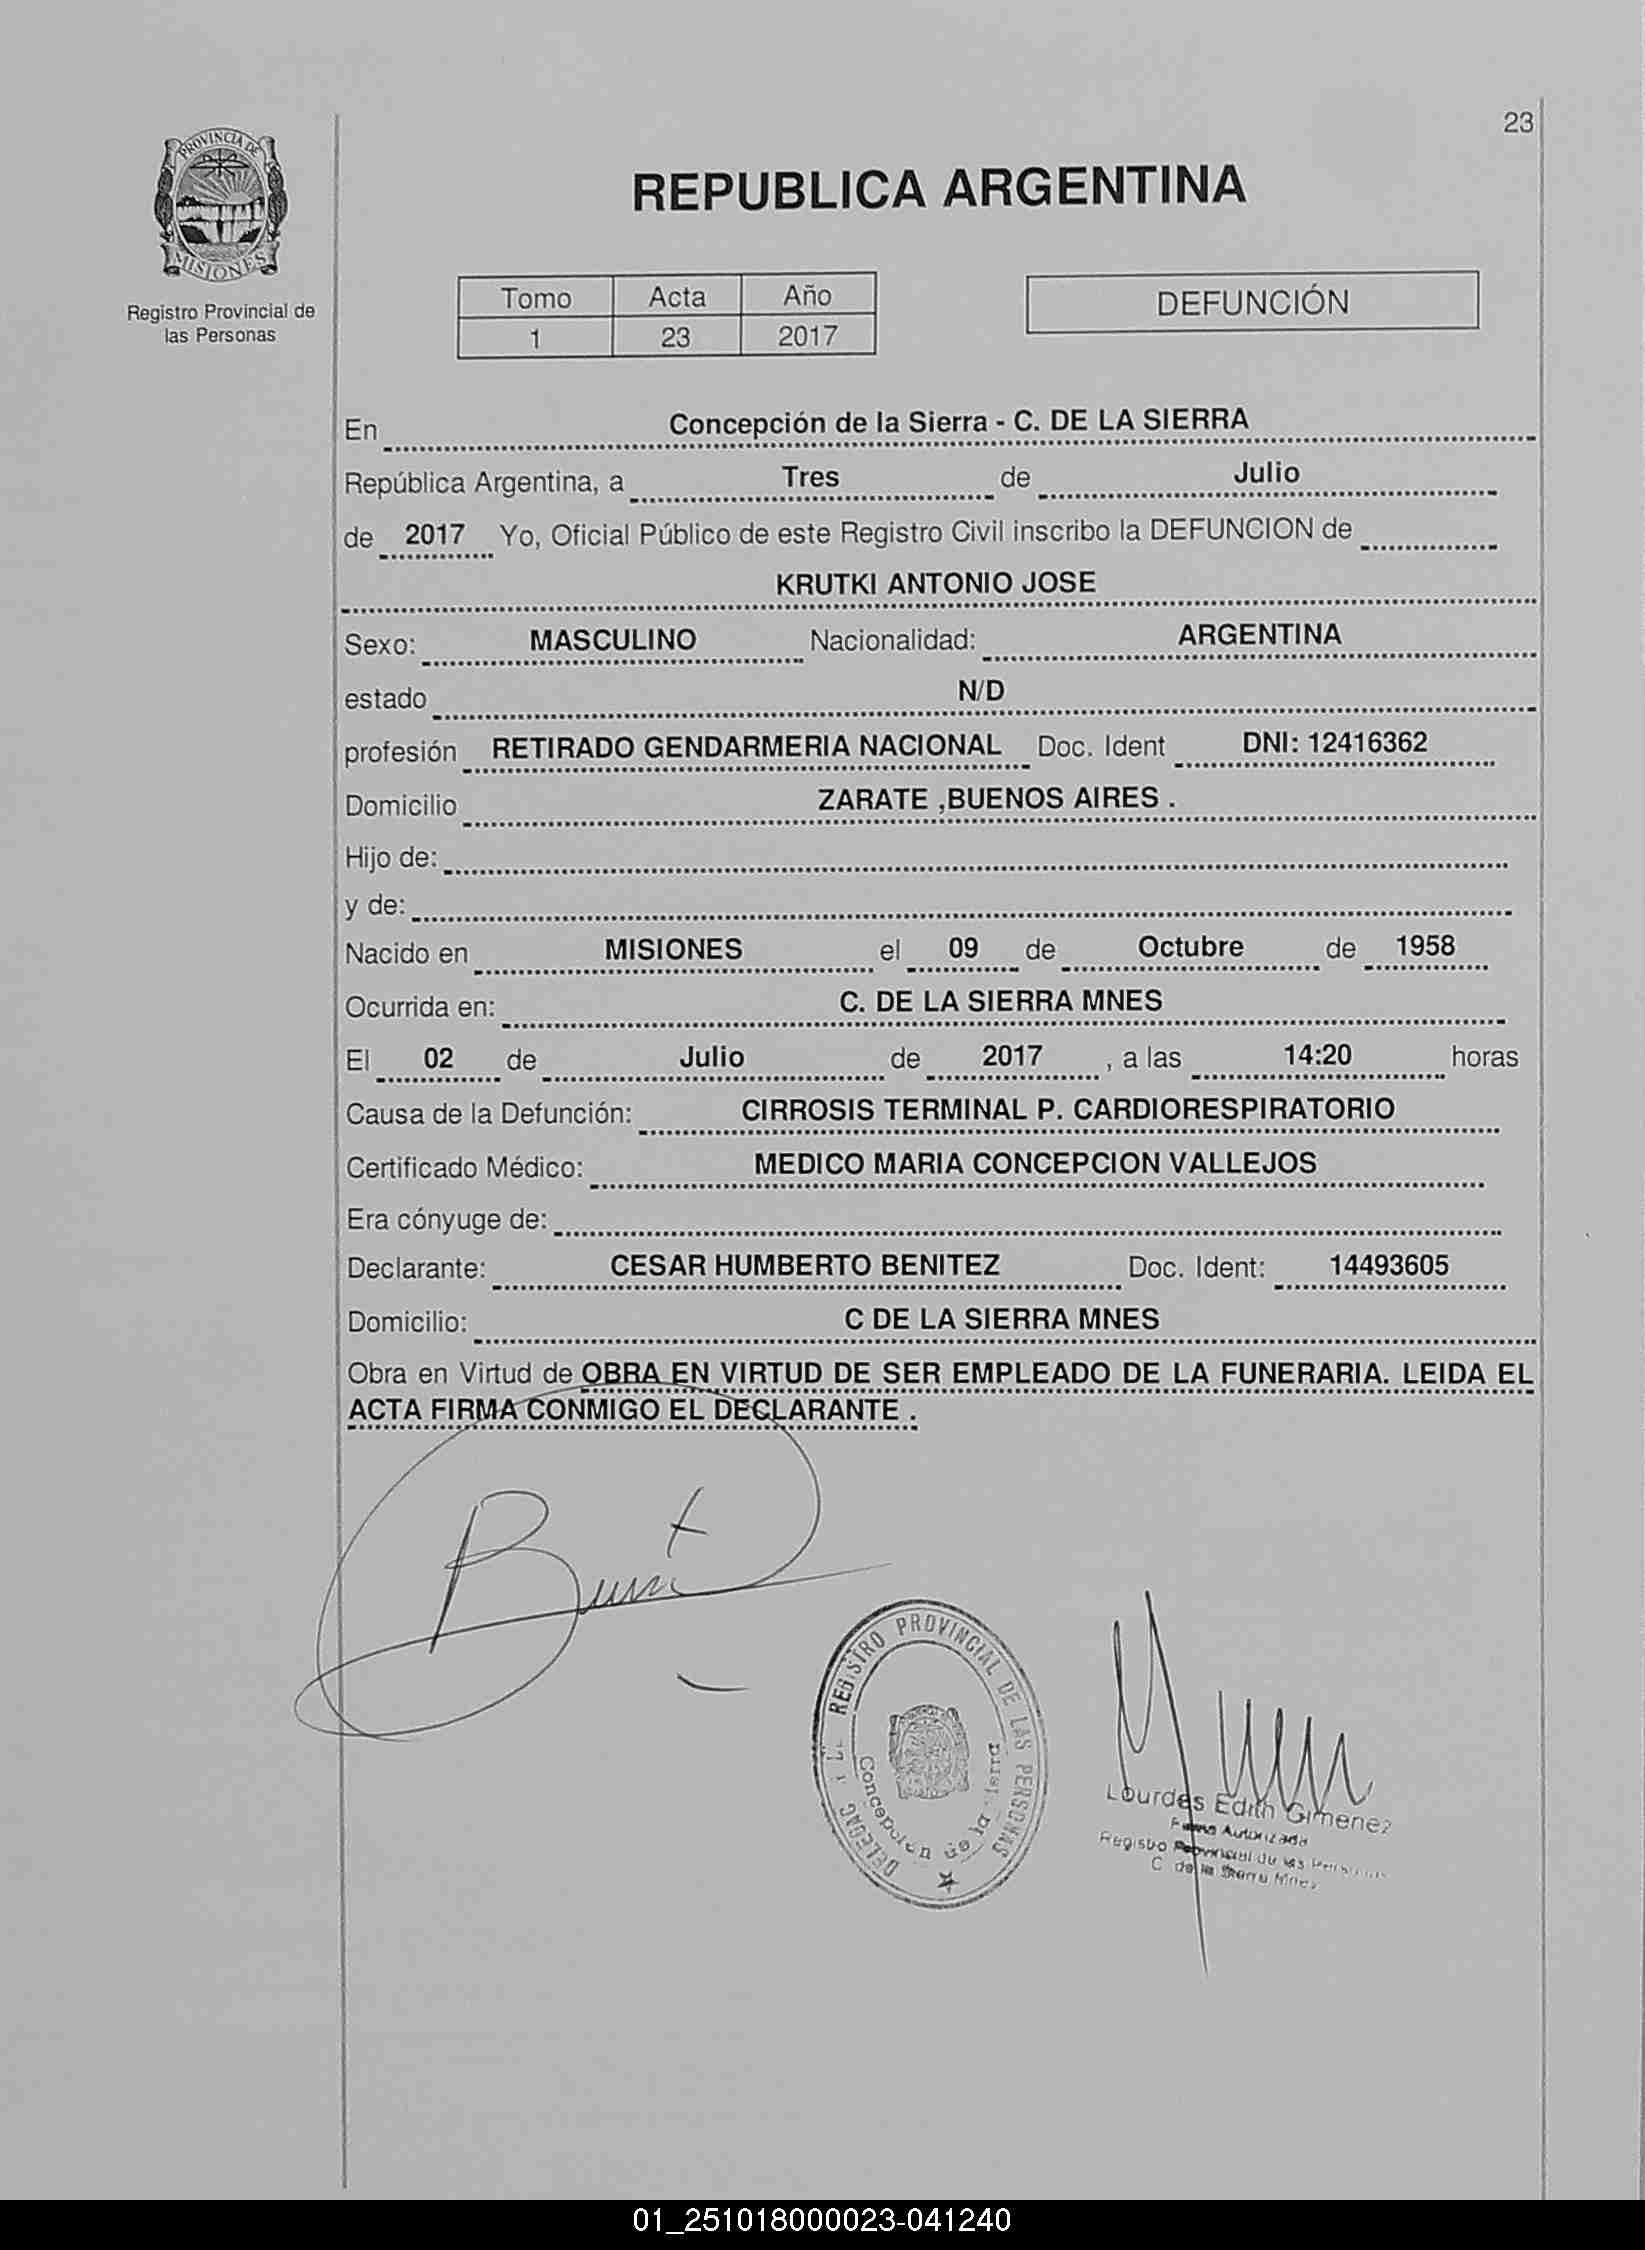 23
PROVINCIA DE
MISIONES
Registro Provincial de
las Personas
REPUBLICA ARGENTINA
Tomo Acta Año
1 23 2017
DEFUNCIÓN
En Concepción de la Sierra - C. DE LA SIERRA
República Argentina, a Tres de Julio
de 2017 Yo, Oficial Público de este Registro Civil inscribo la DEFUNCION de
KRUTKI ANTONIO JOSE
Sexo: MASCULINO Nacionalidad: ARGENTINA
estado N/D
profesión RETIRADO GENDARMERIA NACIONAL Doc. Ident DNI: 12416362
Domicilio ZARATE ,BUENOS AIRES .
Hijo de:
y de:
Nacido en MISIONES el 09 de Octubre de 1958
Ocurrida en: C. DE LA SIERRA MNES
El 02 de Julio de 2017 , a las 14:20 horas
Causa de la Defunción: CIRROSIS TERMINAL P. CARDIORESPIRATORIO
Certificado Médico: MEDICO MARIA CONCEPCION VALLEJOS
Era cónyuge de:
Declarante: CESAR HUMBERTO BENITEZ Doc. Ident: 14493605
Domicilio: C DE LA SIERRA MNES
Obra en Virtud de OBRA EN VIRTUD DE SER EMPLEADO DE LA FUNERARIA. LEIDA EL
ACTA FIRMA CONMIGO EL DECLARANTE .
REGISTRO PROVINCIAL DE LAS PERSONAS
Concepción de la
Lourdes Edith Gimenez
Firma Autorizada
Registro Provincial de las Personas
C. de la Sierra Mnes
01_251018000023-041240